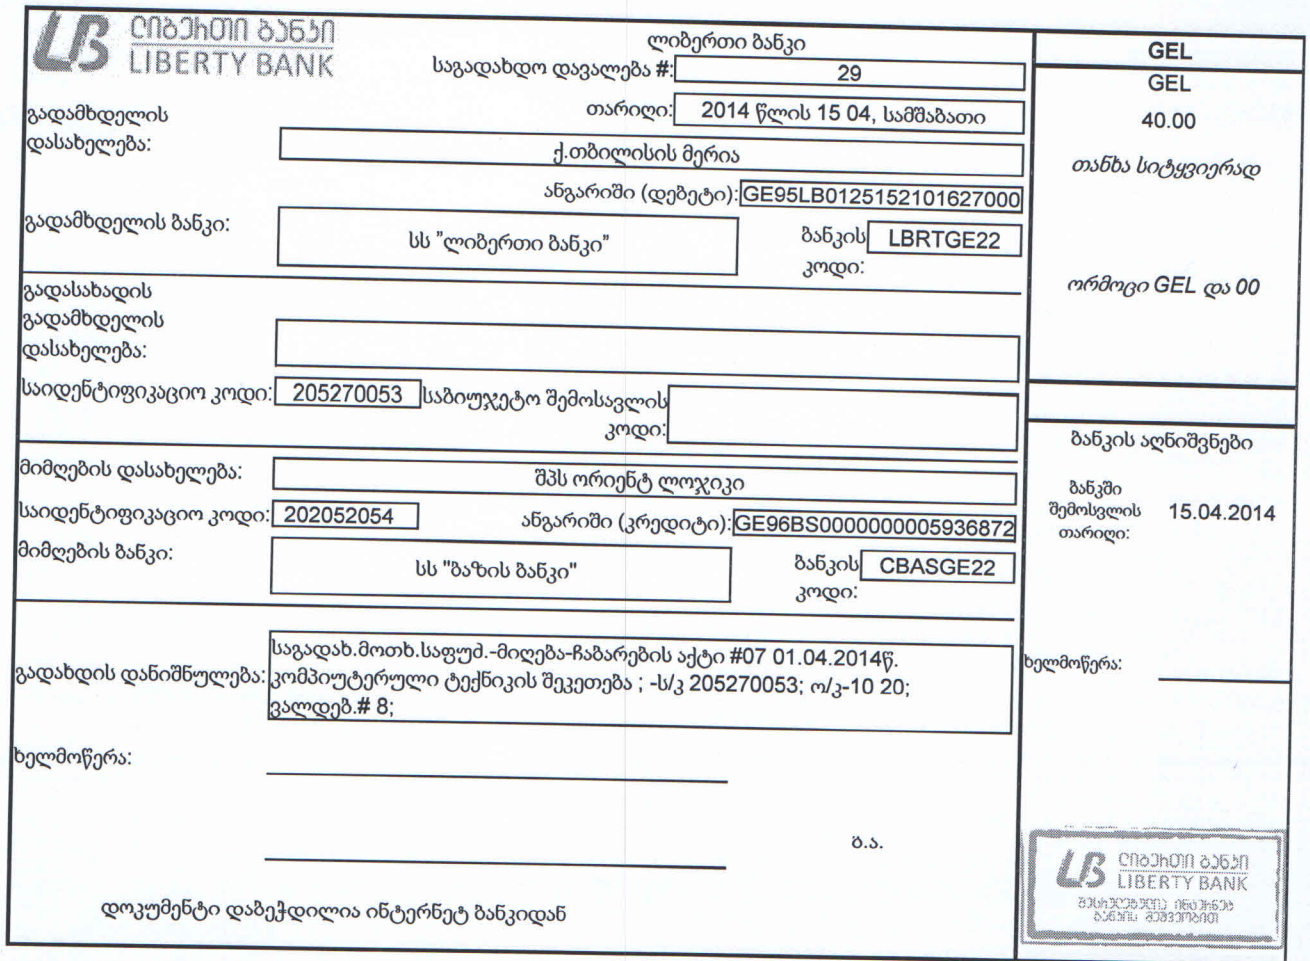 ლიბერთი ბანკი
LIBERTY BANK
ლიბერთი ბანკი
საგადახდო დავალება #: 29
თარიღი: 2014 წლის 15 04, სამშაბათი
გადამხდელის
დასახელება:
ქ.თბილისის მერია
ანგარიში (დებეტი): GE95LB0125152101627000
გადამხდელის ბანკი:
სს "ლიბერთი ბანკი"
ბანკის LBRTGE22
კოდი:
გადასახადის
გადამხდელის
დასახელება:
საიდენტიფიკაციო კოდი: 205270053 საბიუჯეტო შემოსავლის
კოდი:
მიმღების დასახელება: შპს ორიენტ ლოჯიკი
საიდენტიფიკაციო კოდი: 202052054 ანგარიში (კრედიტი): GE96BS0000000005936872
მიმღების ბანკი: სს "ბაზის ბანკი" ბანკის CBASGE22
კოდი:
საგადახ.მოთხ.საფუძ.-მიღება-ჩაბარების აქტი #07 01.04.2014წ.
გადახდის დანიშნულება: კომპიუტერული ტექნიკის შეკეთება ; -ს/კ 205270053; ო/კ-10 20;
ვალდებ.# 8;
ხელმოწერა:
ბ.ა.
დოკუმენტი დაბეჭდილია ინტერნეტ ბანკიდან
GEL
GEL
40.00
თანხა სიტყვიერად
ორმოცი GEL და 00
ბანკის აღნიშვნები
ბანკში
შემოსვლის 15.04.2014
თარიღი:
ხელმოწერა:
ლიბერთი ბანკი
LIBERTY BANK
შესრულებულია ინტერნეტ
ბანკის მეშვეობით